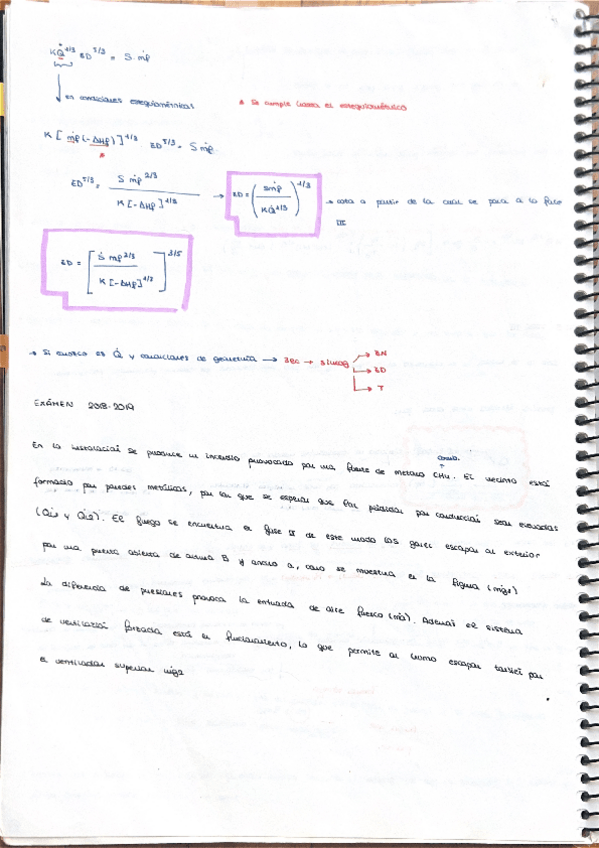 K Q̇^1/3 ZD^5/3 = S ṁf
en condiciones estequiométricas * Se cumple hasta el estequiométrico
K [ ṁf (-ΔHf) ]^1/3 ZD^5/3 = S ṁf
ZD^5/3 = S ṁf^2/3 / K [-ΔHf]^1/3 → ZD = ( S ṁf / K Q̇^1/3 )^1/3 → cota a partir de la cual se pasa a la fase
III
ZD = [ S ṁf^2/3 / K [-ΔHf]^1/3 ]^3/5
→ Si conozco es Q̇ y condiciones de geometría → 3 ec → 3 incog → ZN
→ ZD
→ T
EXÁMEN 2018-2019
comb.
En la instalación se produce un incendio provocado por una fuente de metano CH4. El recinto está
formado por paredes metálicas, por lo que se espera que las pérdidas por conducción sean elevadas
(Q̇i1 y Q̇i2). El fuego se encuentra en fase II de este modo los gases escapan al exterior
por una puerta abierta de altura B y ancho a, como se muestra en la figura (ṁgs)
La diferencia de presiones provoca la entrada de aire fresco (ṁa). Además el sistema
de ventilación forzada está en funcionamiento, lo que permite al humo escapar también por
el ventilador superior